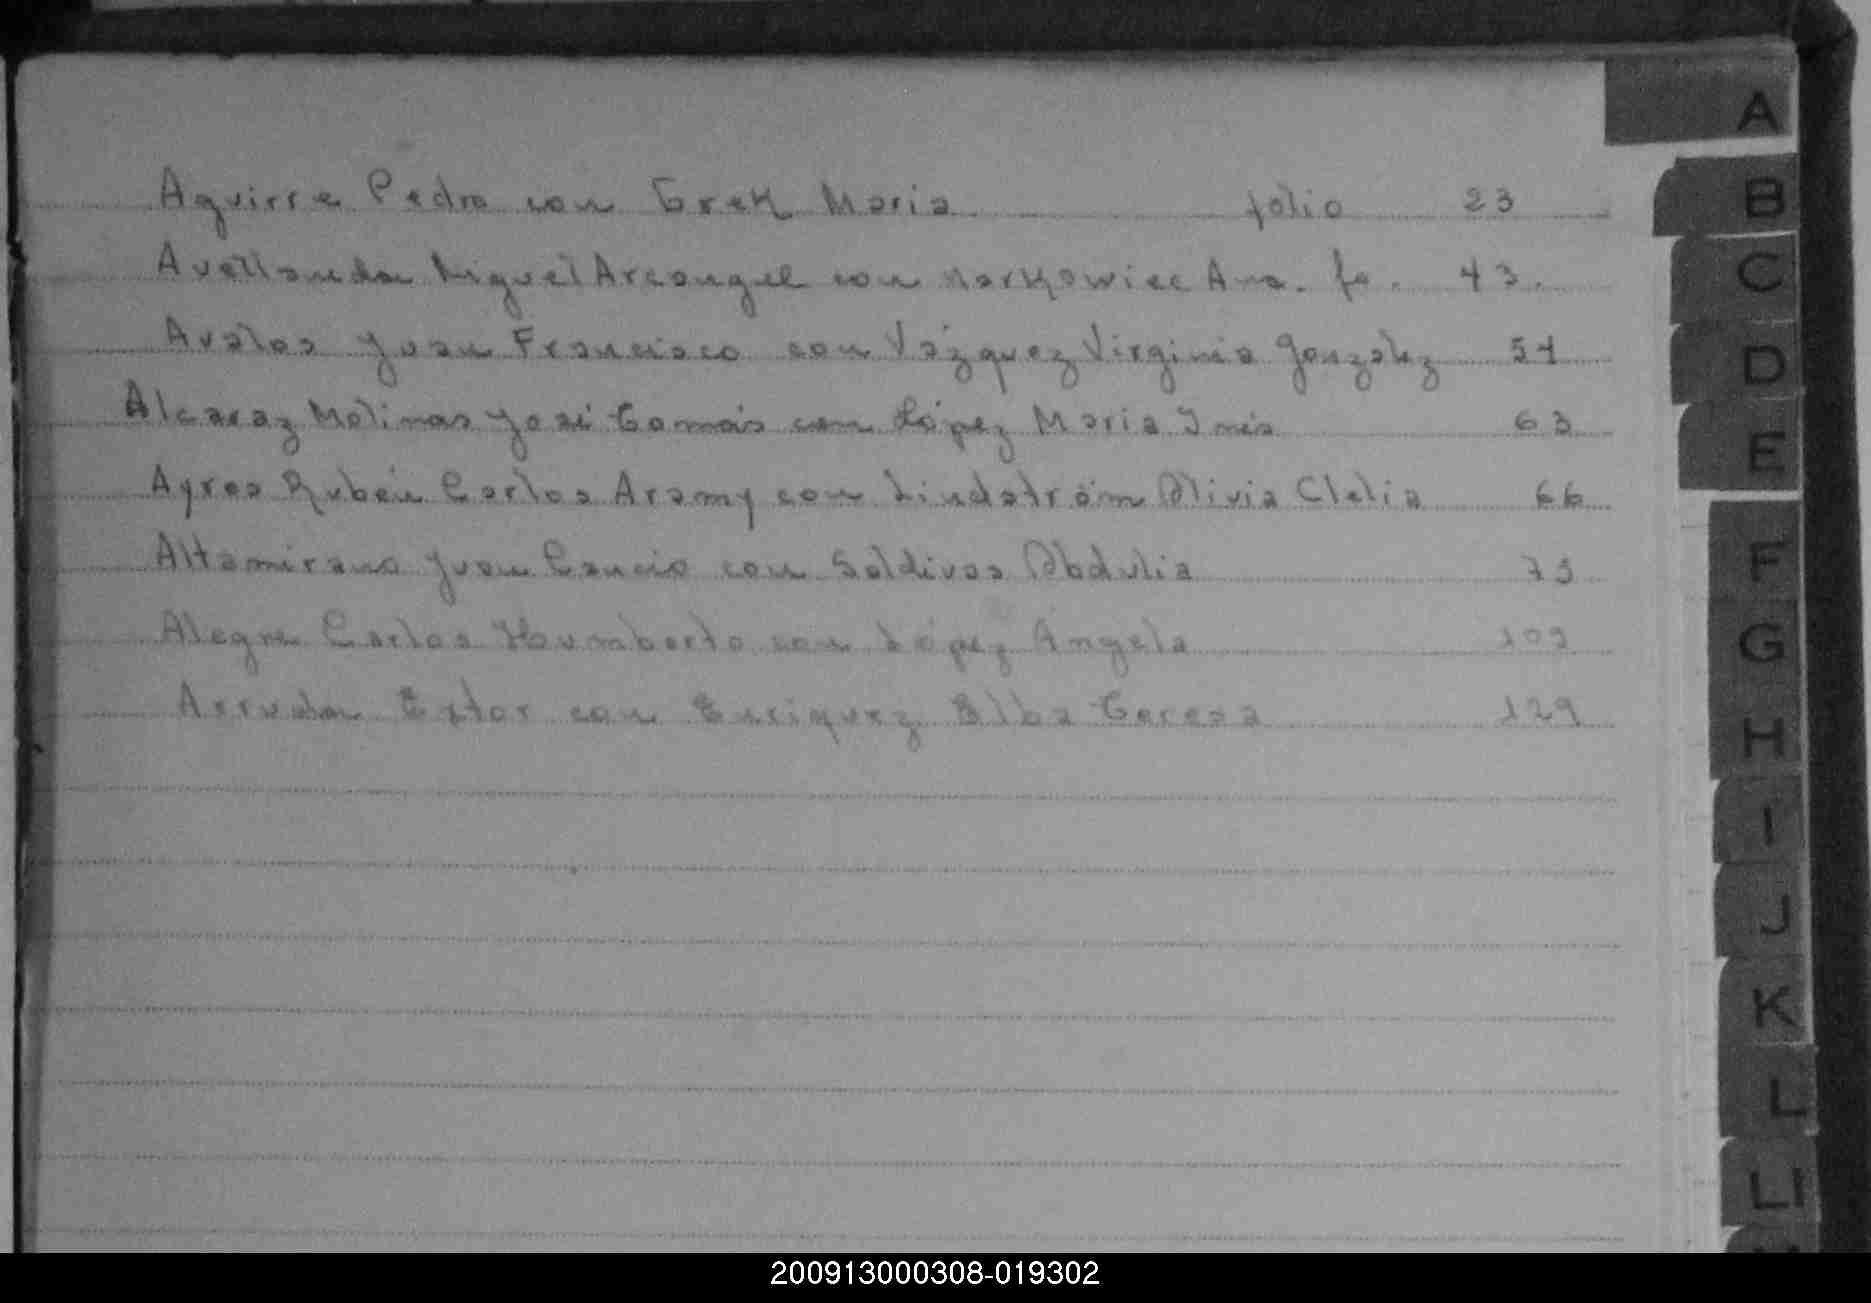 Aguirre Pedro con Grek Maria folio 23
Avellanda Miguel Arcangel con Markowiec Ana. fo. 43.
Avalos Juan Francisco con Vázquez Virginia Gonzalez 54
Alcaraz Molinas José Tomás con López Maria Inés 63
Ayres Rubén Carlos Aramy con Lindström Olivia Clelia 66
Altamirano Juan Cancio con Saldivas Obdulia
Alegre Carlos Humberto con López Angela 109
Arruda Extor con Enriquez Elba Teresa 129
A
B
C
D
E
F
G
H
I
J
K
L
Ll
200913000308-019302